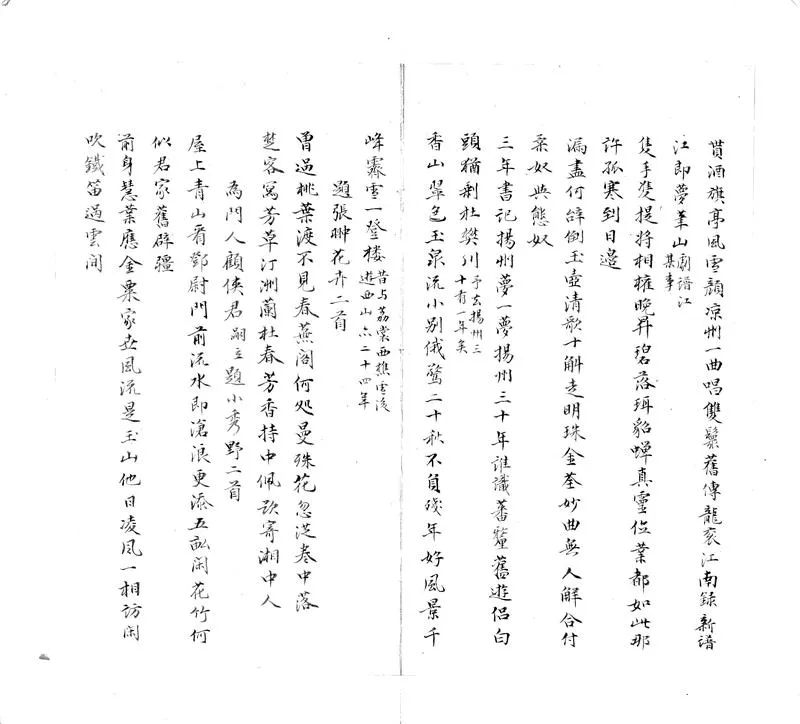 貰酒旗亭風雪顏涼州一曲唱雙鬟舊傳龍衮江南錄新譜
江郎夢筆山劇譜江
集事
隻手雙提將相權晚昇碧落珥貂蟬真靈位業都如此那
許孤寒到日邊
漏盡何辭倒玉壺清歌十斛走明珠金荃妙曲無人解合付
桒奴與態奴
三年書記揚州夢一夢揚州三十年誰識蕃釐舊遊侶白
頭猶剩杜樊川予去揚州三
十有一年矣
香山翠色玉泉流小别俄驚二十秋不負殘年好風景千
峰霽雪一登楼昔与荔裳西樵雪後
遊西山六二十四年
題張翀花卉二首
曾過桃葉渡不見春蕪閣何処曼殊花忽從卷中落
楚客寫芳草汀洲蘭杜春芳香持中佩欲寄湘中人
為門人顧俠君嗣立題小秀野二首
屋上青山看鄧尉門前流水即滄浪更添五畝閑花竹何
似君家舊辟疆
前身慧業應金粟家世風流是玉山他日凌風一相訪閑
吹鐵笛過雲間